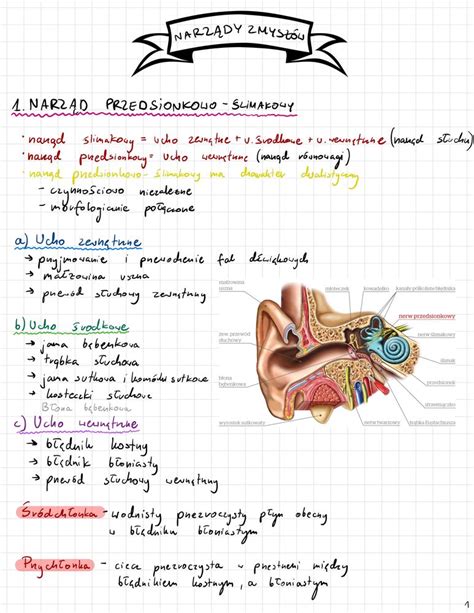 NARZĄDY ZMYSŁÓW
1. NARZĄD PRZEDSIONKOWO-ŚLIMAKOWY
• narząd ślimakowy = ucho zewnętrzne + u. środkowe + u. wewnętrzne (narząd słuchu)
• narząd przedsionkowy = ucho wewnętrzne (narząd równowagi)
• narząd przedsionkowo-ślimakowy ma charakter dualistyczny
– czynnościowo niezależne
– morfologicznie połączone
a) Ucho zewnętrzne
→ przyjmowanie i przewodzenie fal dźwiękowych
→ małżowina uszna
→ przewód słuchowy zewnętrzny
b) Ucho środkowe
→ jama bębenkowa
→ trąbka słuchowa
→ jama sutkowa i komórki sutkowe
→ kosteczki słuchowe
Błona bębenkowa
c) Ucho wewnętrzne
→ błędnik kostny
→ błędnik błoniasty
→ przewód słuchowy wewnętrzny
małżowina
uszna
zew. przewód
słuchowy
błona
bębenkowa
wyrostek sutkowaty
młoteczek
kowadełko
kanały półkoliste błędnika
nerw przedsionkowy
nerw ślimakowy
ślimak
przedsionek
strzemiączko
nerw twarzowy
trąbka Eustachiusza
Śródchłonka – wodnisty przezroczysty płyn obecny
w błędniku błoniastym
Przychłonka – ciecz przezroczysta w przestrzeni między
błędnikiem kostnym, a błoniastym
1